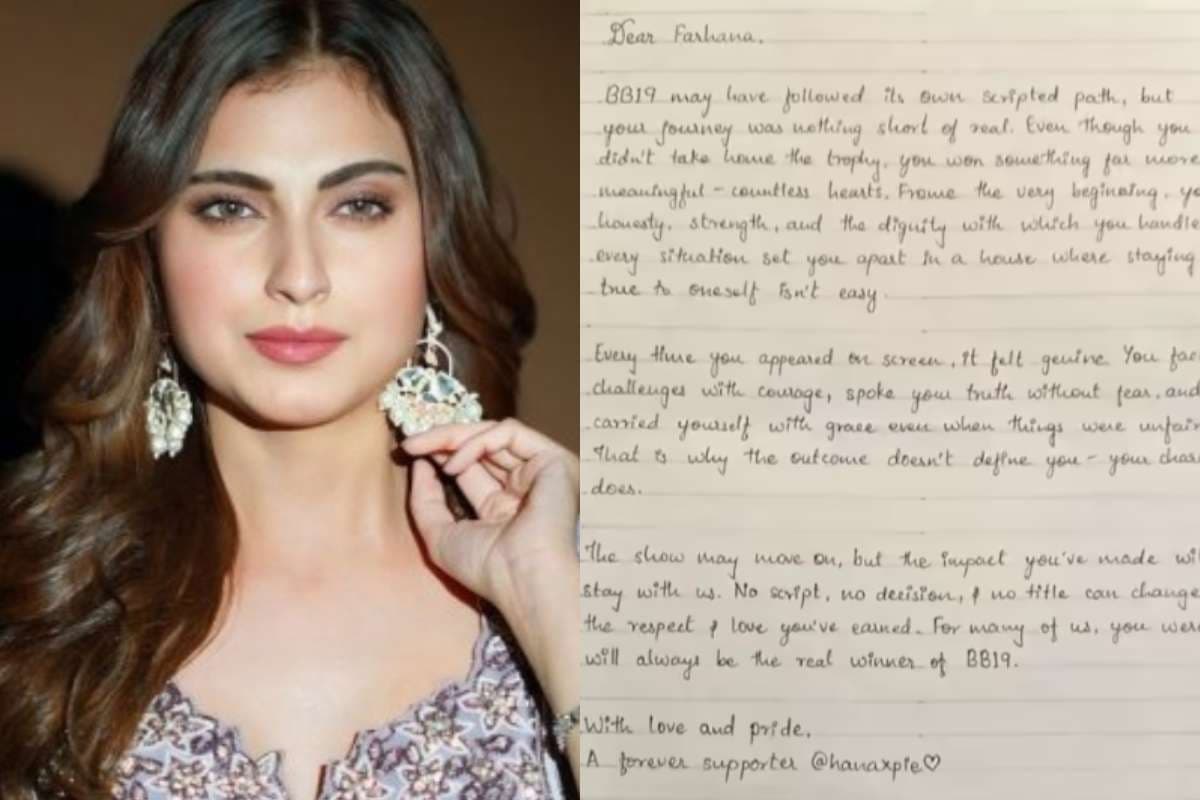 Dear Farhana,
BB19 may have followed its own scripted path, but
your journey was nothing short of real. Even though you
didn't take home the trophy, you won something far more
meaningful - countless hearts. Frome the very beginning, yo
honesty, strength, and the dignity with which you handle
every situation set you apart in a house where staying
true to oneself isn't easy.
Every time you appeared on screen, it felt genuine You fac
challenges with courage, spoke your truth without fear, and
carried yourself with grace even when things were unfair
That is why the outcome doesn't define you - your char
does.
The show may move on, but the impact you've made wil
stay with us. No script, no decision, & no title can change
the respect & love you've earned. For many of us, you were
will always be the real winner of BB19.
With love and pride,
A forever supporter @hanaxpie♡